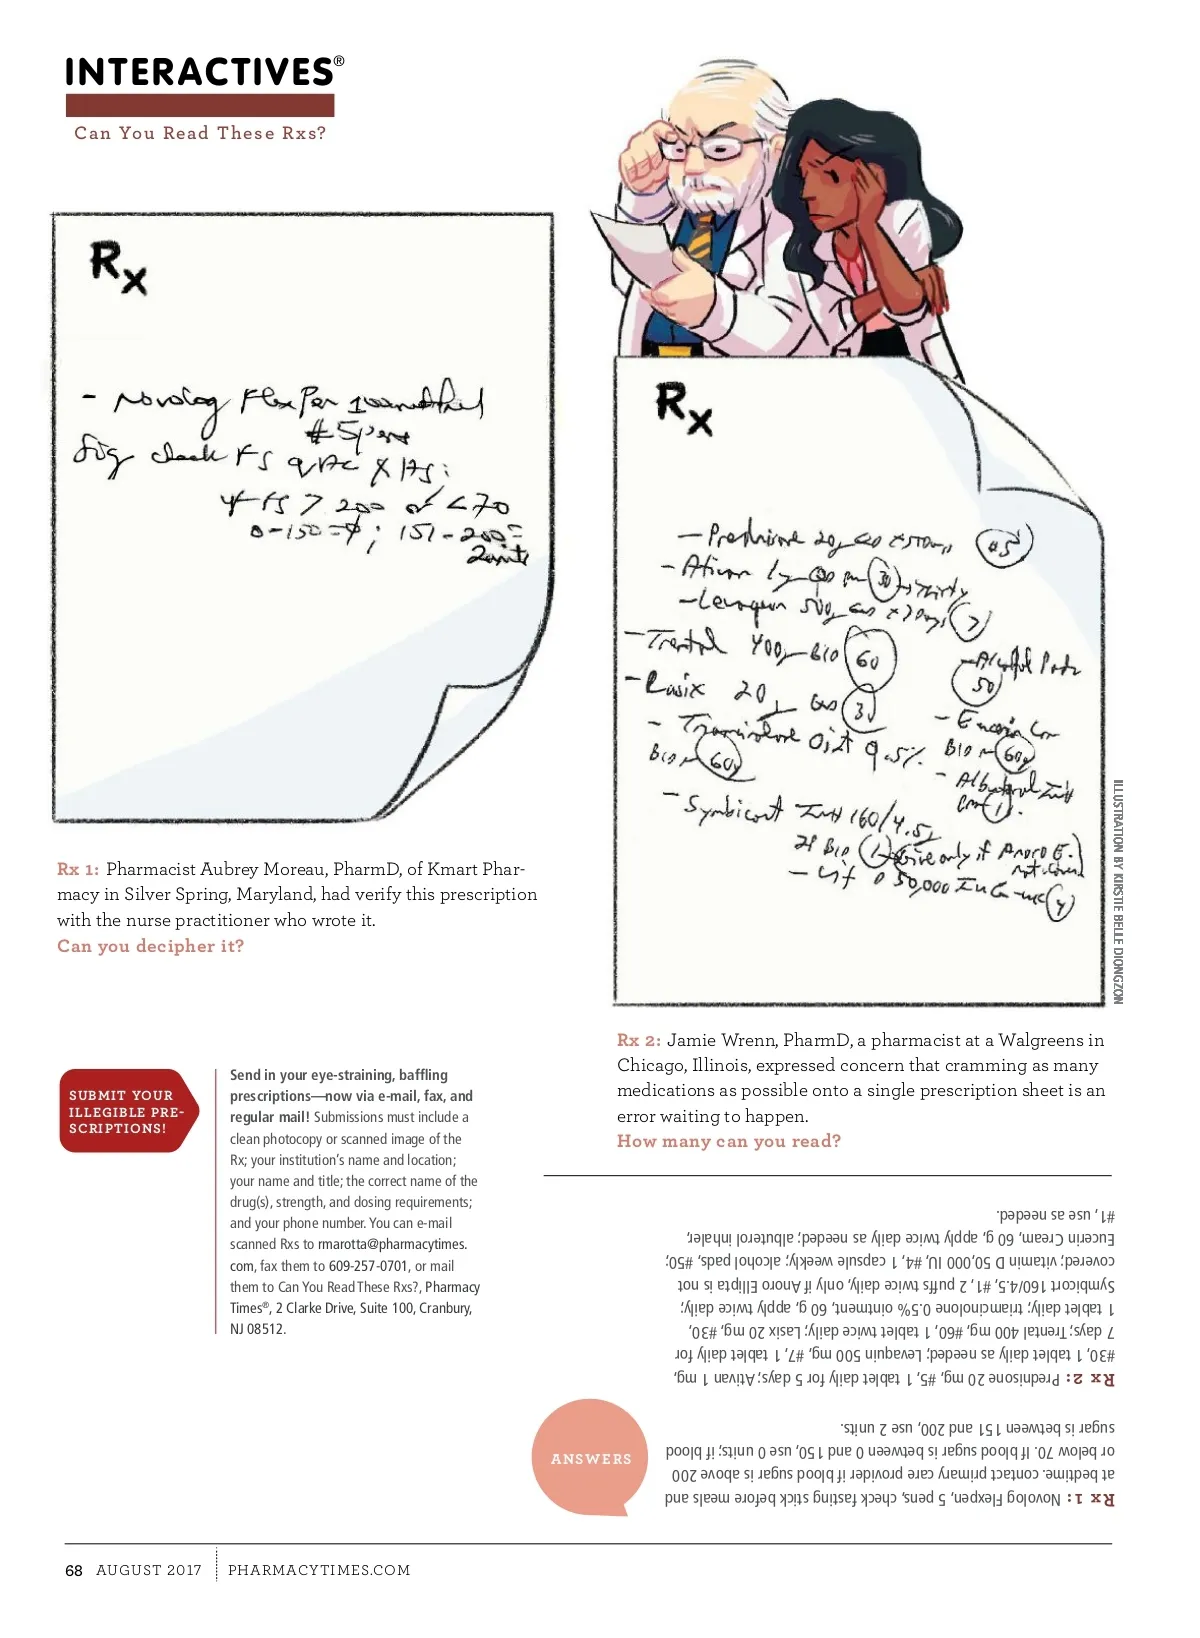 INTERACTIVES®
Can You Read These Rxs?
Rx
- Novolog FlexPen
#5 pens
Sig check FS qAC & HS;
if FS > 200 or < 70
0-150 = ϕ; 151-200 =
2 units
Rx
- Prednisone 20mg x 5 Days #5
- Ativan 1mg QD prn 30 thirty
- Levaquin 500mg x 7 Days 7
- Trental 400mg BID 60
- Alcohol Pads
50
- Lasix 20mg 30
- Eucerin Cr
- Triamcinolone Oint 0.5%
BID 60g
BID 60g
- Albuterol Inh
prn 1
- Symbicort Inh 160/4.5
2P BID 1 Give only if Anoro E.
not covered
- Vit D 50,000 IU 4
ILLUSTRATION BY KIRSTIE BELLE DIONGZON
Rx 1: Pharmacist Aubrey Moreau, PharmD, of Kmart Phar-
macy in Silver Spring, Maryland, had verify this prescription
with the nurse practitioner who wrote it.
Can you decipher it?
Rx 2: Jamie Wrenn, PharmD, a pharmacist at a Walgreens in
Chicago, Illinois, expressed concern that cramming as many
medications as possible onto a single prescription sheet is an
error waiting to happen.
How many can you read?
SUBMIT YOUR
ILLEGIBLE PRE-
SCRIPTIONS!
Send in your eye-straining, baffling
prescriptions—now via e-mail, fax, and
regular mail! Submissions must include a
clean photocopy or scanned image of the
Rx; your institution's name and location;
your name and title; the correct name of the
drug(s), strength, and dosing requirements;
and your phone number. You can e-mail
scanned Rxs to rmarotta@pharmacytimes.
com, fax them to 609-257-0701, or mail
them to Can You Read These Rxs?, Pharmacy
Times®, 2 Clarke Drive, Suite 100, Cranbury,
NJ 08512.
ANSWERS
Rx 1: Novolog Flexpen, 5 pens, check fasting stick before meals and
at bedtime. contact primary care provider if blood sugar is above 200
or below 70. If blood sugar is between 0 and 150, use 0 units; if blood
sugar is between 151 and 200, use 2 units.
Rx 2: Prednisone 20 mg, #5, 1 tablet daily for 5 days; Ativan 1 mg,
#30, 1 tablet daily as needed; Levaquin 500 mg, #7, 1 tablet daily for
7 days; Trental 400 mg, #60, 1 tablet twice daily; Lasix 20 mg, #30,
1 tablet daily; triamcinolone 0.5% ointment, 60 g, apply twice daily;
Symbicort 160/4.5, #1, 2 puffs twice daily, only if Anoro Ellipta is not
covered; vitamin D 50,000 IU, #4, 1 capsule weekly; alcohol pads, #50;
Eucerin Cream, 60 g, apply twice daily as needed; albuterol inhaler,
#1, use as needed.
68 AUGUST 2017 PHARMACYTIMES.COM